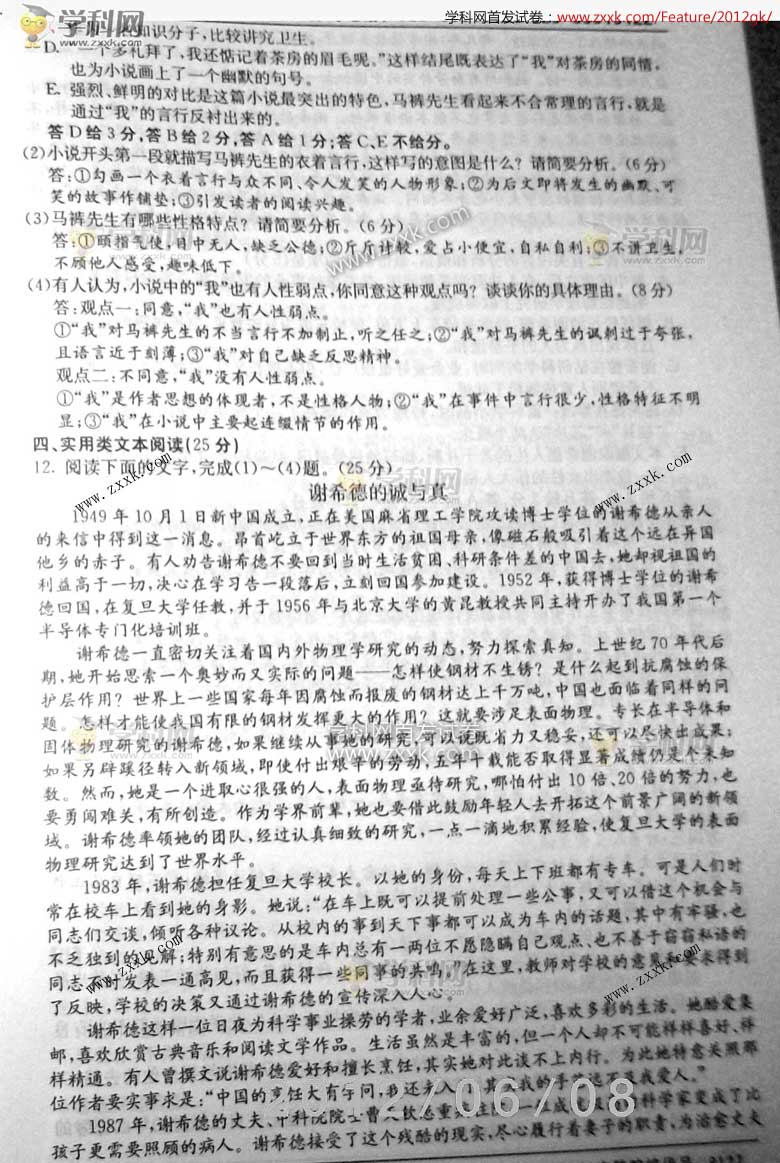 学科网首发试卷：www.zxxk.com/Feature/2012gk/
学科网
知识分子，比较讲究卫生。
D. “一个多礼拜了，我还惦记着茶房的眉毛呢。”这样结尾既表达了“我”对茶房的同情，
也为小说画上了一个幽默的句号。
E. 强烈、鲜明的对比是这篇小说最突出的特色，马裤先生看起来不合常理的言行，就是
通过“我”的言行反衬出来的。
答D给3分，答B给2分，答A给1分；答C、E不给分。
(2)小说开头第一段就描写马裤先生的衣着言行，这样写的意图是什么？请简要分析。(6分)
答：①勾画一个衣着言行与众不同、令人发笑的人物形象；②为后文即将发生的幽默、可
笑的故事作铺垫；③引发读者的阅读兴趣。
(3)马裤先生有哪些性格特点？请简要分析。(6分)
答：①颐指气使，目中无人，缺乏公德；②斤斤计较，爱占小便宜，自私自利；③不讲卫生，
不顾他人感受，趣味低下。
(4)有人认为，小说中的“我”也有人性弱点，你同意这种观点吗？谈谈你的具体理由。(8分)
答：观点一：同意，“我”也有人性弱点。
①“我”对马裤先生的不当言行不加制止，听之任之；②“我”对马裤先生的讽刺过于夸张，
且语言近于刻薄；③“我”对自己缺乏反思精神。
观点二：不同意，“我”没有人性弱点。
①“我”是作者思想的体现者，不是性格人物；②“我”在事件中言行很少，性格特征不明
显；③“我”在小说中主要起连缀情节的作用。
四、实用类文本阅读(25分)
12. 阅读下面的文字，完成(1)～(4)题。(25分)
谢希德的诚与真
1949年10月1日新中国成立，正在美国麻省理工学院攻读博士学位的谢希德从亲人
的来信中得到这一消息。昂首屹立于世界东方的祖国母亲，像磁石般吸引着这个远在异国
他乡的赤子。有人劝告谢希德不要回到当时生活贫困、科研条件差的中国去，她却视祖国的
利益高于一切，决心在学习告一段落后，立刻回国参加建设。1952年，获得博士学位的谢希
德回国，在复旦大学任教，并于1956年与北京大学的黄昆教授共同主持开办了我国第一个
半导体专门化培训班。
谢希德一直密切关注着国内外物理学研究的动态，努力探索真知。上世纪70年代后
期，她开始思索一个奥妙而又实际的问题——怎样使钢材不生锈？是什么起到抗腐蚀的保
护层作用？世界上一些国家每年因腐蚀而报废的钢材达上千万吨，中国也面临着同样的问
题。怎样才能使我国有限的钢材发挥更大的作用？这就要涉足表面物理。专长在半导体和
固体物理研究的谢希德，如果继续从事她的研究，可以说既省力又稳妥，还可以尽快出成果；
如果另辟蹊径转入新领域，即使付出艰辛的劳动，五年十载能否取得显著成绩仍是个未知
数。然而，她是一个进取心很强的人，表面物理亟待研究，哪怕付出10倍、20倍的努力，也
要勇闯难关，有所创造。作为学界前辈，她也要借此鼓励年轻人去开拓这个前景广阔的新领
域。谢希德率领她的团队，经过认真细致的研究，一点一滴地积累经验，使复旦大学的表面
物理研究达到了世界水平。
1983年，谢希德担任复旦大学校长。以她的身份，每天上下班都有专车。可是人们时
常在校车上看到她的身影。她说：“在车上既可以提前处理一些公事，又可以借这个机会与
同志们交谈，倾听各种议论。从校内的事到天下事都可以成为车内的话题，其中有牢骚，也
不乏独到的见解；特别有意思的是车内总有一两位不愿隐瞒自己观点、也不善于窃窃私语的
同志不时发表一通高见，而且获得一些同事的共鸣。”在这里，教师对学校的意见和要求得到
了反映，学校的决策又通过谢希德的宣传深入人心。
谢希德这样一位日夜为科学事业操劳的学者，业余爱好广泛，喜欢多彩的生活。她酷爱集
邮，喜欢欣赏古典音乐和阅读文学作品。生活虽然是丰富的，但一个人却不可能样样喜好、样
样精通。有人曾撰文说谢希德爱好和擅长烹饪，其实她对此谈不上内行。为此她特意关照那
位作者要实事求是：“中国的烹饪大有学问，我还未入门，其实我的手艺远不及我爱人。”
1987年，谢希德的丈夫、中科院院士曹天钦患重病住院，一位成就卓著的科学家变成了比
孩子更需要照顾的病人。谢希德接受了这个残酷的现实，尽心履行着妻子的职责，为治愈丈夫
2012/06/08